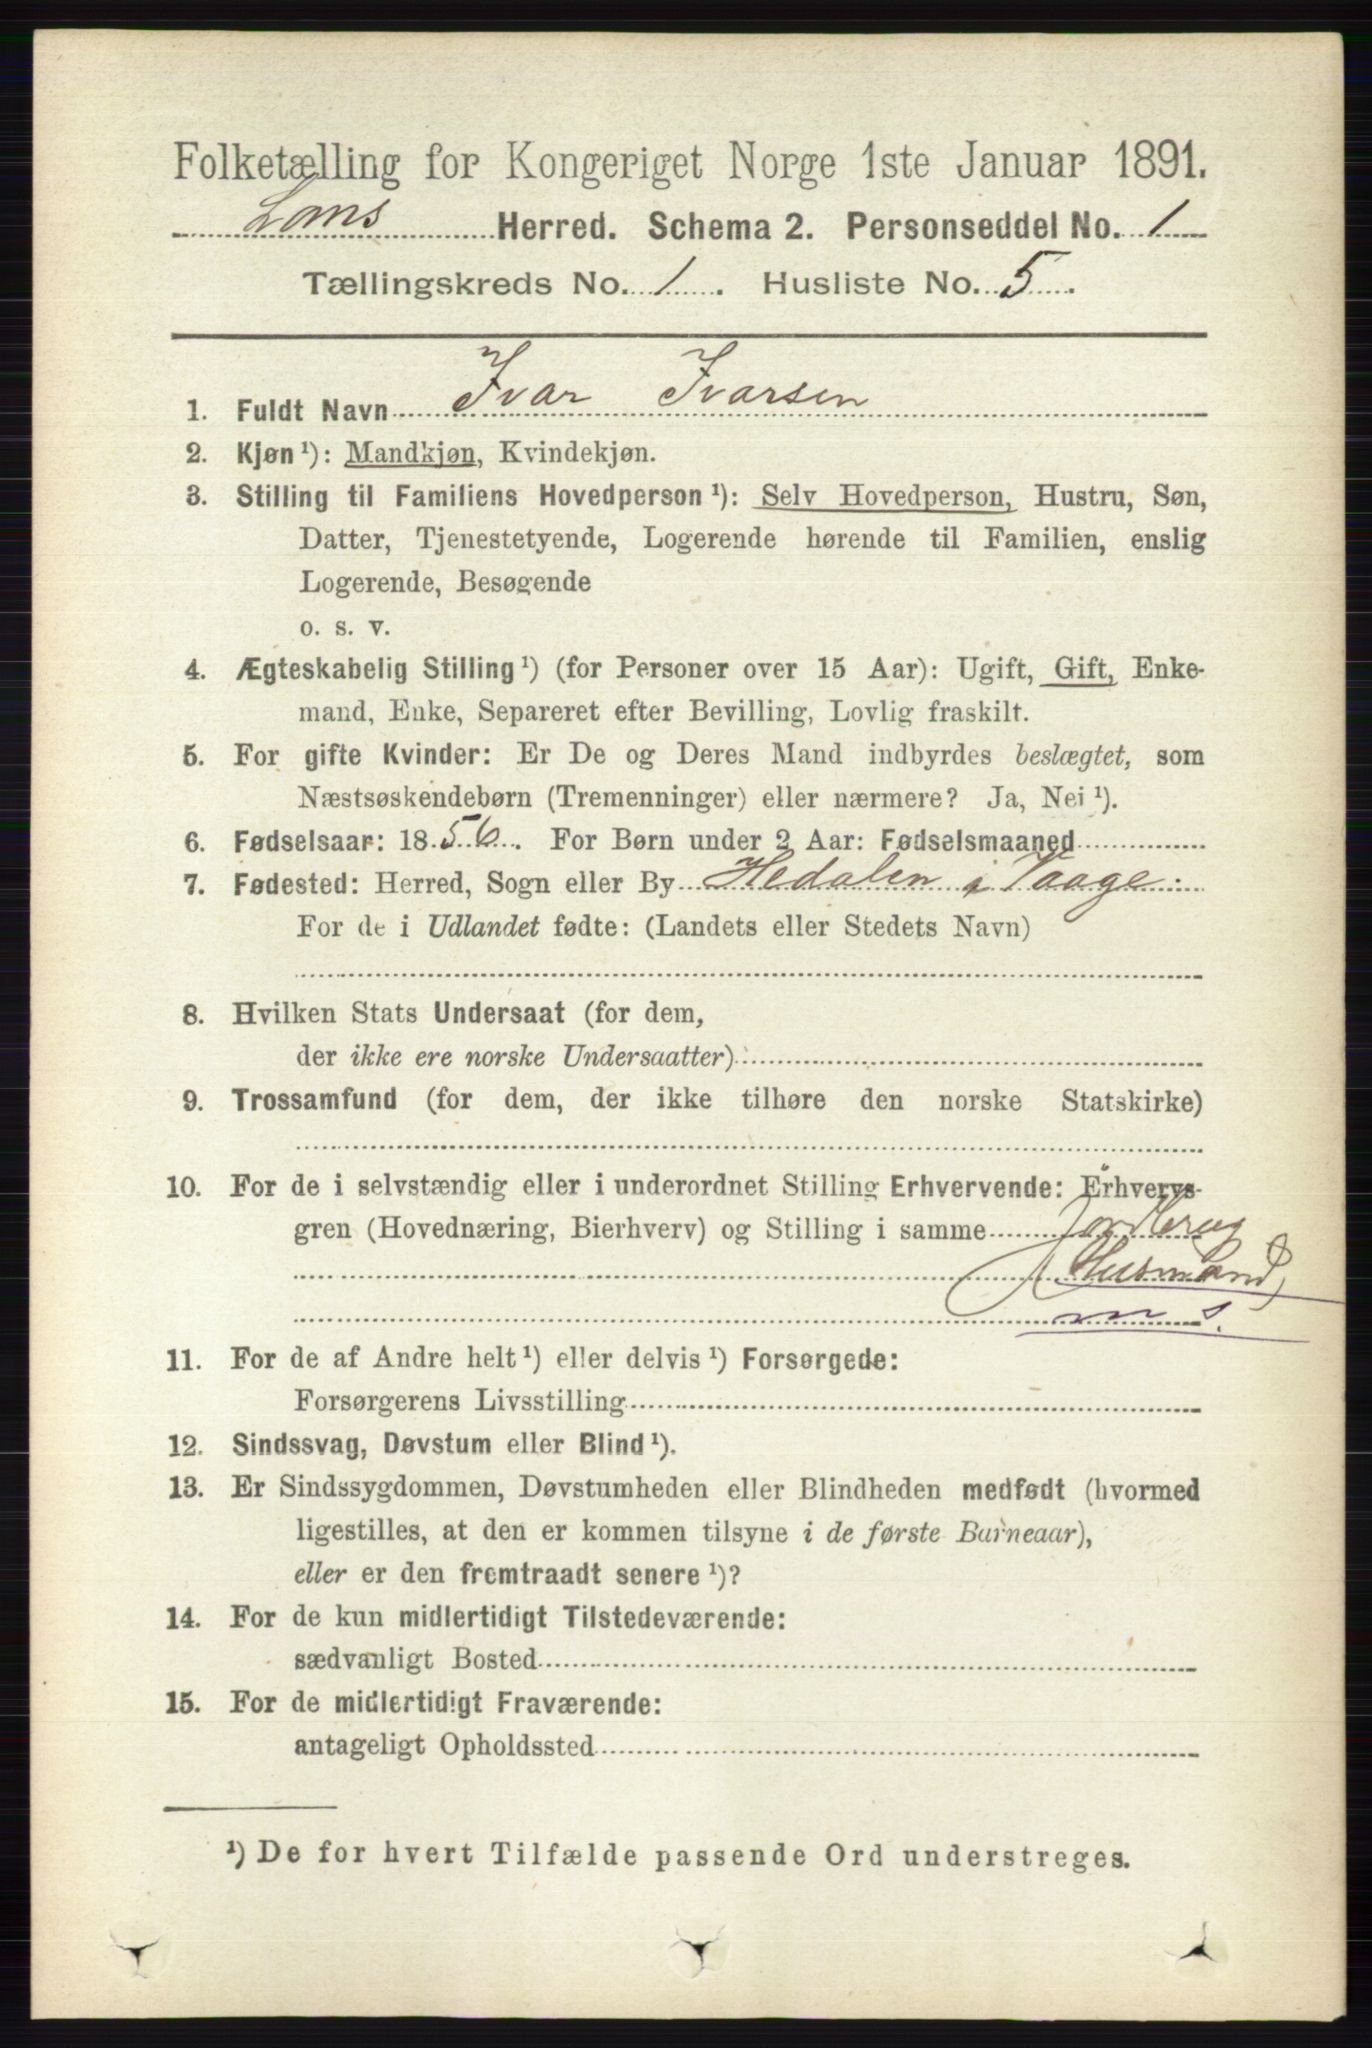 Folketælling for Kongeriget Norge 1ste Januar 1891.
Loms Herred. Schema 2. Personseddel No. 1
Tællingskreds No. 1. Husliste No. 5.
1. Fuldt Navn Ivar Ivarsen
2. Kjøn ¹): Mandkjøn, Kvindekjøn.
3. Stilling til Familiens Hovedperson ¹): Selv Hovedperson, Hustru, Søn,
Datter, Tjenestetyende, Logerende hørende til Familien, enslig
Logerende, Besøgende
o. s. v.
4. Ægteskabelig Stilling ¹) (for Personer over 15 Aar): Ugift, Gift, Enke-
mand, Enke, Separeret efter Bevilling, Lovlig fraskilt.
5. For gifte Kvinder: Er De og Deres Mand indbyrdes beslægtet, som
Næstsøskendebørn (Tremenninger) eller nærmere? Ja, Nei ¹).
6. Fødselsaar: 1856. For Børn under 2 Aar: Fødselsmaaned
7. Fødested: Herred, Sogn eller By Hedalen i Vaage.
For de i Udlandet fødte: (Landets eller Stedets Navn)
8. Hvilken Stats Undersaat (for dem,
der ikke ere norske Undersaatter)
9. Trossamfund (for dem, der ikke tilhøre den norske Statskirke)
10. For de i selvstændig eller i underordnet Stilling Erhvervende: Erhvervs-
gren (Hovednæring, Bierhverv) og Stilling i samme Jordbrug
Husmand
m s.
11. For de af Andre helt ¹) eller delvis ¹) Forsørgede:
Forsørgerens Livsstilling
12. Sindssvag, Døvstum eller Blind ¹).
13. Er Sindssygdommen, Døvstumheden eller Blindheden medfødt (hvormed
ligestilles, at den er kommen tilsyne i de første Barneaar),
eller er den fremtraadt senere ¹)?
14. For de kun midlertidigt Tilstedeværende:
sædvanligt Bosted
15. For de midlertidigt Fraværende:
antageligt Opholdssted
¹) De for hvert Tilfælde passende Ord understreges.